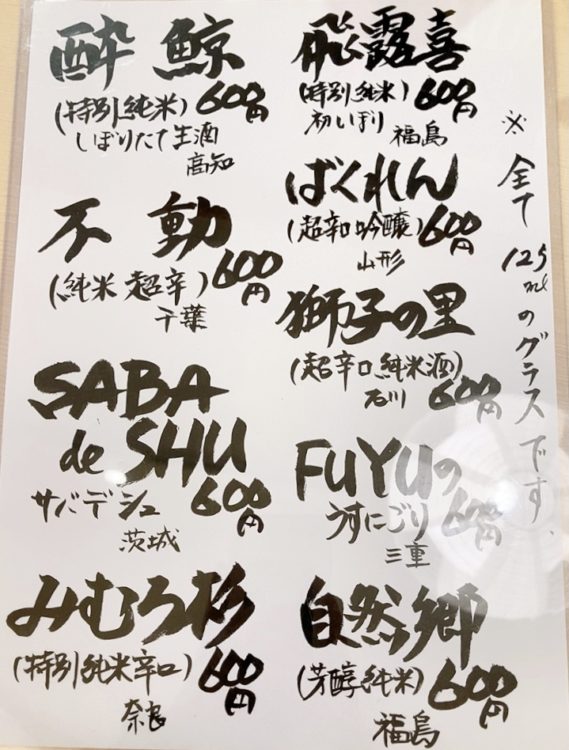 飛露喜
(特別純米) 600円
初しぼり
福島
ばくれん
(超辛口吟醸) 600円
山形
獅子の里
(超辛口純米酒)
石川 600円
FUYUの
うすにごり 600円
三重
自然郷
(芳醇純米) 600円
福島
酔鯨
(特別純米) 600円
しぼりたて生酒
高知
不動
(純米超辛) 600円
千葉
SABA
de SHU
サバデシュ 600円
茨城
みむろ杉
(特別純米辛口) 600円
奈良
※全て125mlのグラスです、